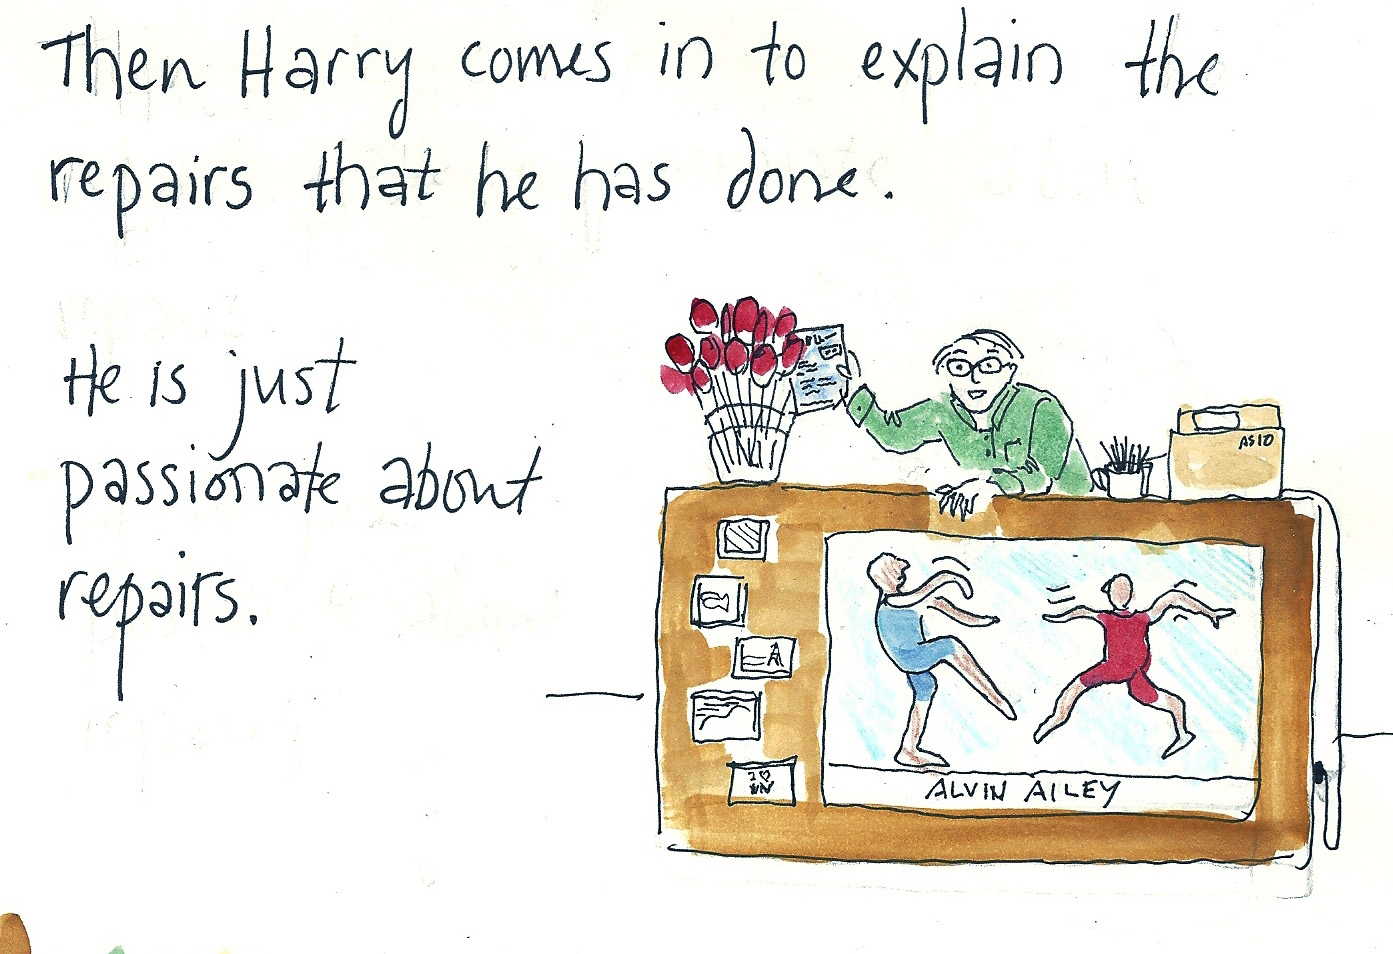 Then Harry comes in to explain the
repairs that he has done.
He is just
passionate about
repairs.
ALVIN AILEY